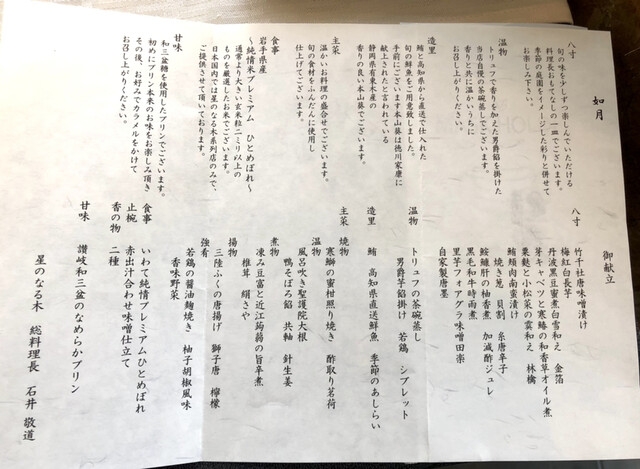 如月
八寸
旬の味を少しずつ楽しんでいただける
料理長おもてなしの一皿でございます。
季節の庭園をイメージした彩りと併せて
お楽しみ下さい。
温物
トリュフで香りを加えた男爵餡を掛けた
当店自慢の茶碗蒸しでございます。
香りと共に温かいうちに
お召し上がりください。
造里
鮪は高知県から直送で仕入れた
旬の鮮魚をご用意致しました。
手前にございます本山葵は徳川家康に
献上されたと言われている
静岡県有東木産の
香りの良い本山葵でございます。
主菜
温かいお料理の盛合せでございます。
旬の食材をふんだんに使用し
仕上げてございます。
食事
岩手県産
～純情米プレミアム ひとめぼれ～
通常より大きい玄米粒二ミリ以上の
ものを厳選したお米でございます。
日本国内では星のなる木系列店のみで、
ご提供させて頂いております。
甘味
和三盆糖を使用したプリンでございます。
初めにプリン本来のお味をお楽しみ頂き
その後、お好みでカラメルをかけて
お召し上がりください。
御献立
八寸
竹千社唐味噌漬け
梅紅白長芋 金箔
丹波黒豆蜜煮白雪和え
芽キャベツと寒鰆の和香草オイル煮
菜麩と小松菜の霙和え 林檎
鮪頬肉南蛮漬け
焼き葱 貝割 糸唐辛子
鮟鱇肝の柚香煮 加減酢ジュレ
黒毛和牛時雨煮
里芋フォアグラ味噌田楽
自家製唐墨
温物
トリュフの茶碗蒸し
男爵芋餡掛け 若鶏 シブレット
造里
鮪 高知県直送鮮魚 季節のあしらい
主菜
焼物
寒鰤の蜜柑照り焼き 酢取り茗荷
温物
風呂吹き聖護院大根
鴨そぼろ餡 共軸 針生姜
煮物
凍み豆富と近江蒟蒻の旨辛煮
椎茸 絹さや
揚物
三陸ふくの唐揚げ 獅子唐 檸檬
強肴
若鶏の醤油麹焼き 柚子胡椒風味
香味野菜
食事
いわて純情プレミアムひとめぼれ
止椀
赤出汁合わせ味噌仕立て
香の物
二種
甘味
讃岐和三盆のなめらかプリン
星のなる木 総料理長 石井 敬道